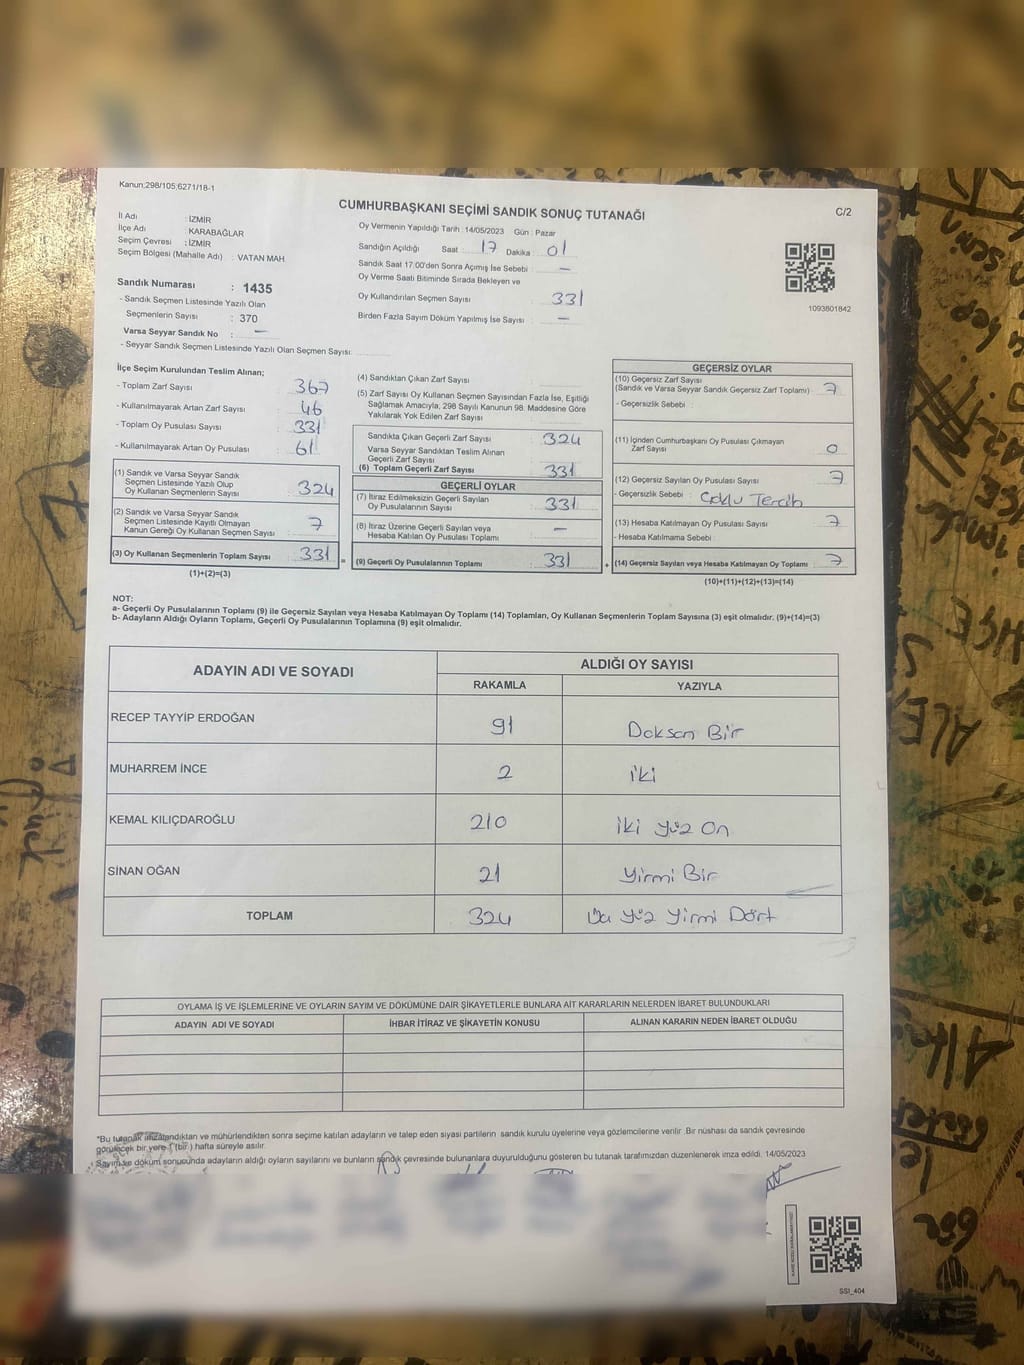 Kanun:298/105;6271/18-1
CUMHURBAŞKANI SEÇİMİ SANDIK SONUÇ TUTANAĞI
C/2
İl Adı : İZMİR
İlçe Adı : KARABAĞLAR
Seçim Çevresi : İZMİR
Seçim Bölgesi (Mahalle Adı) : VATAN MAH
Sandık Numarası : 1435
- Sandık Seçmen Listesinde Yazılı Olan
Seçmenlerin Sayısı : 370
Varsa Seyyar Sandık No : —
- Seyyar Sandık Seçmen Listesinde Yazılı Olan Seçmen Sayısı:
Oy Vermenin Yapıldığı Tarih :14/05/2023 Gün : Pazar
Sandığın Açıldığı Saat : 17 Dakika : 01
Sandık Saat 17:00'den Sonra Açımış İse Sebebi : —
Oy Verme Saati Bitiminde Sırada Bekleyen ve
Oy Kullandırılan Seçmen Sayısı : 331
Birden Fazla Sayım Döküm Yapılmış İse Sayısı : —
1093801842
İlçe Seçim Kurulundan Teslim Alınan;
- Toplam Zarf Sayısı : 367
- Kullanılmayarak Artan Zarf Sayısı : 46
- Toplam Oy Pusulası Sayısı : 331
- Kullanılmayarak Artan Oy Pusulası : 61
(1) Sandık ve Varsa Seyyar Sandık
Seçmen Listesinde Yazılı Olup
Oy Kullanan Seçmenlerin Sayısı : 324
(2) Sandık ve Varsa Seyyar Sandık
Seçmen Listesinde Kayıtlı Olmayan
Kanun Gereği Oy Kullanan Seçmen Sayısı : 7
(3) Oy Kullanan Seçmenlerin Toplam Sayısı : 331
(1)+(2)=(3)
(4) Sandıktan Çıkan Zarf Sayısı :
(5) Zarf Sayısı Oy Kullanan Seçmen Sayısından Fazla İse, Eşitliği
Sağlamak Amacıyla, 298 Sayılı Kanunun 98. Maddesine Göre
Yakılarak Yok Edilen Zarf Sayısı :
Sandıkta Çıkan Geçerli Zarf Sayısı : 324
Varsa Seyyar Sandıktan Teslim Alınan
Geçerli Zarf Sayısı :
(6) Toplam Geçerli Zarf Sayısı : 331
GEÇERLİ OYLAR
(7) İtiraz Edilmeksizin Geçerli Sayılan
Oy Pusulalarının Sayısı : 331
(8) İtiraz Üzerine Geçerli Sayılan veya
Hesaba Katılan Oy Pusulası Toplamı : —
= (9) Geçerli Oy Pusulalarının Toplamı : 331
GEÇERSİZ OYLAR
(10) Geçersiz Zarf Sayısı
(Sandık ve Varsa Seyyar Sandık Geçersiz Zarf Toplamı) : 7
- Geçersizlik Sebebi :
(11) İçinden Cumhurbaşkanı Oy Pusulası Çıkmayan
Zarf Sayısı : 0
(12) Geçersiz Sayılan Oy Pusulası Sayısı : 7
- Geçersizlik Sebebi : Çoklu Tercih
(13) Hesaba Katılmayan Oy Pusulası Sayısı : 7
- Hesaba Katılmama Sebebi :
+ (14) Geçersiz Sayılan veya Hesaba Katılmayan Oy Toplamı : 7
(10)+(11)+(12)+(13)=(14)
NOT:
a- Geçerli Oy Pusulalarının Toplamı (9) ile Geçersiz Sayılan veya Hesaba Katılmayan Oy Toplamı (14) Toplamları, Oy Kullanan Seçmenlerin Toplam Sayısına (3) eşit olmalıdır. (9)+(14)=(3)
b- Adayların Aldığı Oyların Toplamı, Geçerli Oy Pusulalarının Toplamına (9) eşit olmalıdır.
ADAYIN ADI VE SOYADI ALDIĞI OY SAYISI
RAKAMLA YAZIYLA
RECEP TAYYİP ERDOĞAN 91 Doksan Bir
MUHARREM İNCE 2 iki
KEMAL KILIÇDAROĞLU 210 iki yüz On
SİNAN OĞAN 21 Yirmi Bir
TOPLAM 324 Üç yüz Yirmi Dört
OYLAMA İŞ VE İŞLEMLERİNE VE OYLARIN SAYIM VE DÖKÜMÜNE DAİR ŞİKAYETLERLE BUNLARA AİT KARARLARIN NELERDEN İBARET BULUNDUKLARI
ADAYIN ADI VE SOYADI İHBAR İTİRAZ VE ŞİKAYETİN KONUSU ALINAN KARARIN NEDEN İBARET OLDUĞU
*Bu tutanak imzalandıktan ve mühürlendikten sonra seçime katılan adayların ve talep eden siyasi partilerin sandık kurulu üyelerine veya gözlemcilerine verilir .Bir nüshası da sandık çevresinde
görülecek bir yere 1 (bir ) hafta süreyle asılır.
Sayım ve döküm sonucunda adayların aldığı oyların sayılarını ve bunların sandık çevresinde bulunanlara duyurulduğunu gösteren bu tutanak tarafımızdan düzenlenerek imza edildi. 14/05/2023
SSI_404